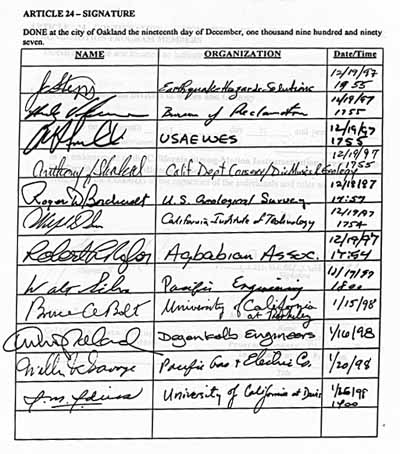 ARTICLE 24 – SIGNATURE
DONE at the city of Oakland the nineteenth day of December, one thousand nine hundred and ninety
seven.
NAME ORGANIZATION Date/Time
J Stepp Earthquake Hazards Solutions 12/19/97 1955
Bureau of Reclamation 12/19/97 1755
USAE WES 12/19/97 1755
Anthony Shakal Calif. Dept Conserv/Div Mines & Geology 12/19/97 1755
Roger D. Borcherdt U.S. Geological Survey
California Institute of Technology 12/19/97 1754
Robert Agbabian Assoc. 12/19/97 1754
Walt Silva Pacific Engineering 12/19/97 1800
Bruce A Bolt University of California at Berkeley 1/15/98
Degenkolb Engineers 1/16/98
Willi Savage Pacific Gas & Electric Co. 1/20/98
I. M. Idriss University of California at Davis 1400